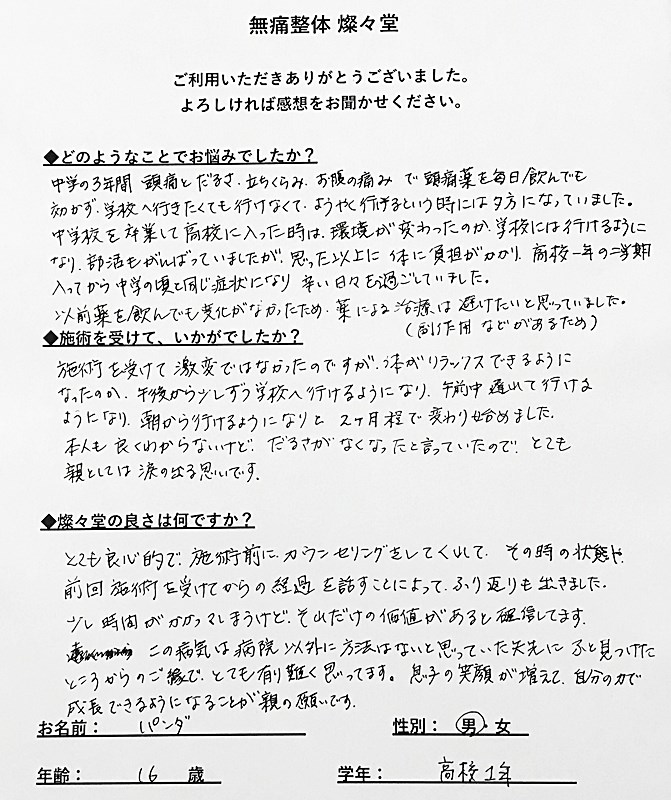 無痛整体 燦々堂
ご利用いただきありがとうございました。
よろしければ感想をお聞かせください。
◆どのようなことでお悩みでしたか？
中学の3年間 頭痛と だるさ、立ちくらみ、お腹の痛み で 頭痛薬を毎日飲んでも
効かず、学校へ行きたくても行けなくて、ようやく行けるという時には夕方になっていました。
中学校を卒業して高校に入った時は、環境が変わったのか、学校には行けるように
なり、部活もがんばっていましたが、思った以上に 体に負担がかかり、高校一年の二学期
入ってから中学の頃と同じ症状になり 辛い日々を過ごしていました。
以前薬を飲んでも変化がなかったため、薬による治療は避けたいと思っていました。
（副作用 などがあるため）
◆施術を受けて、いかがでしたか？
施術を受けて 激変ではなかったのですが、体がリラックスできるように
なったのか、午後から少しずつ学校へ行けるようになり、午前中 遅れて行ける
ようになり、朝から行けるようになりと 2ヶ月程で変わり始めました。
本人も 良くわからないけど、だるさがなくなったと言っていたので、とても
親としては 涙の出る思いです。
◆燦々堂の良さは何ですか？
とても良心的で、施術前に カウンセリングをしてくれて、その時の状態や、
前回 施術を受けてからの 経過 を話すことによって、ふり返りも出きました。
少し 時間がかかってしまうけど、それだけの価値があると確信してます。
この病気は病院 以外に方法はないと思っていた矢先に ふと見つけた
ところからのご縁で、とても有り難く思ってます。息子の笑顔が増えて、自分の力で
成長できるようになることが親の願いです。
お名前： パンダ 性別： 男・女
年齢： 16 歳 学年： 高校1年